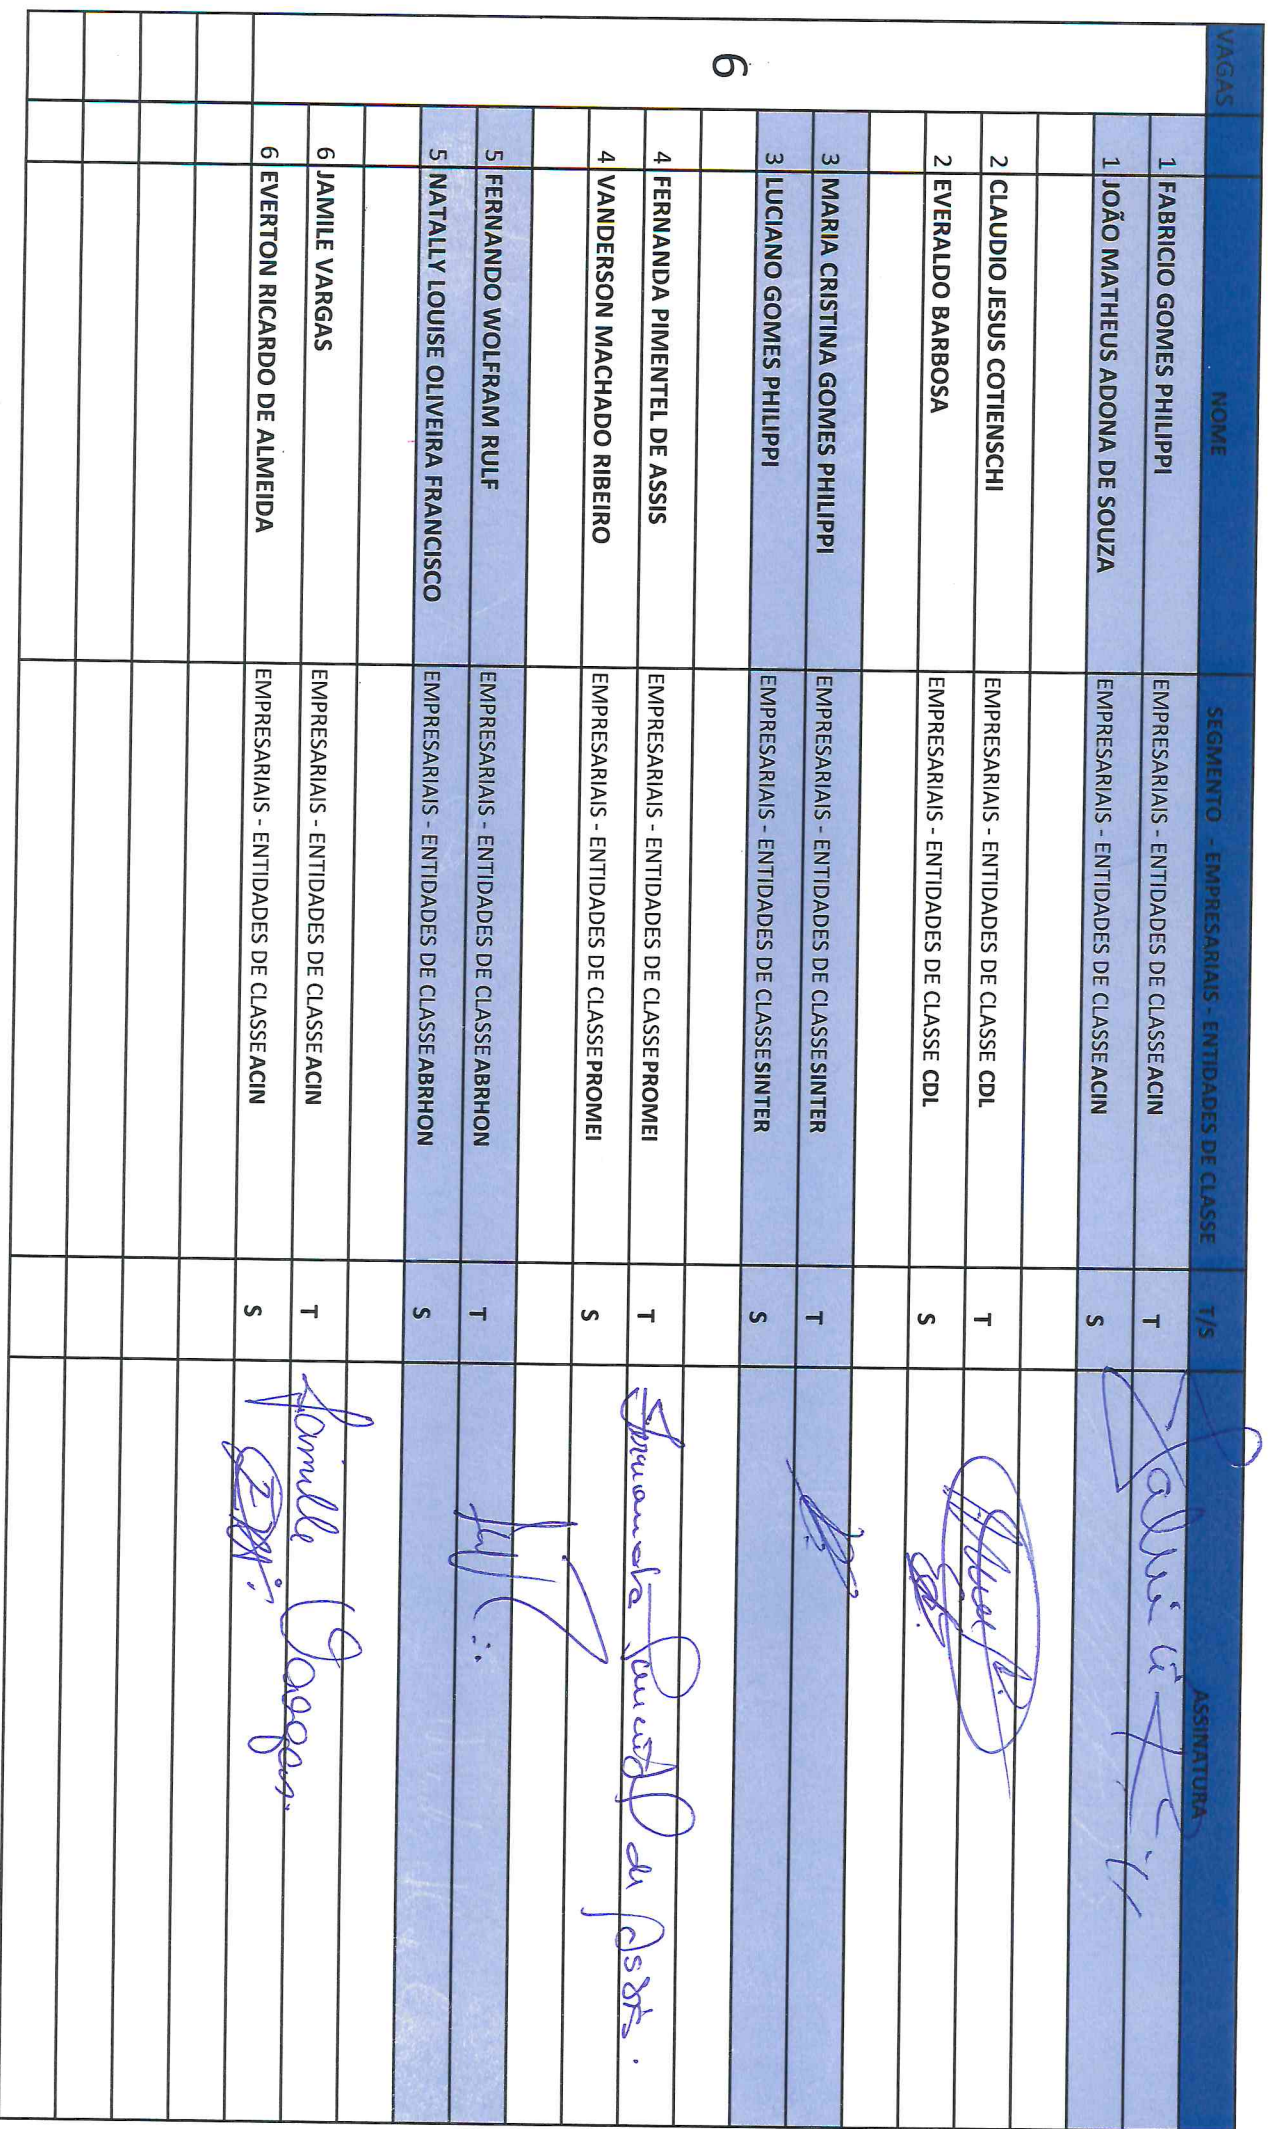 VAGAS NOME SEGMENTO - EMPRESARIAIS - ENTIDADES DE CLASSE T/S ASSINATURA
6
1 FABRICIO GOMES PHILIPPI EMPRESARIAIS - ENTIDADES DE CLASSE ACIN T
1 JOÃO MATHEUS ADONA DE SOUZA EMPRESARIAIS - ENTIDADES DE CLASSE ACIN S
2 CLAUDIO JESUS COTIENSCHI EMPRESARIAIS - ENTIDADES DE CLASSE CDL T
2 EVERALDO BARBOSA EMPRESARIAIS - ENTIDADES DE CLASSE CDL S
3 MARIA CRISTINA GOMES PHILIPPI EMPRESARIAIS - ENTIDADES DE CLASSE SINTER T
3 LUCIANO GOMES PHILIPPI EMPRESARIAIS - ENTIDADES DE CLASSE SINTER S
4 FERNANDA PIMENTEL DE ASSIS EMPRESARIAIS - ENTIDADES DE CLASSE PROMEI T Fernanda Pimentel de Assis.
4 VANDERSON MACHADO RIBEIRO EMPRESARIAIS - ENTIDADES DE CLASSE PROMEI S
5 FERNANDO WOLFRAM RULF EMPRESARIAIS - ENTIDADES DE CLASSE ABRHON T
5 NATALLY LOUISE OLIVEIRA FRANCISCO EMPRESARIAIS - ENTIDADES DE CLASSE ABRHON S
6 JAMILE VARGAS EMPRESARIAIS - ENTIDADES DE CLASSE ACIN T Jamille Vargas.
6 EVERTON RICARDO DE ALMEIDA EMPRESARIAIS - ENTIDADES DE CLASSE ACIN S